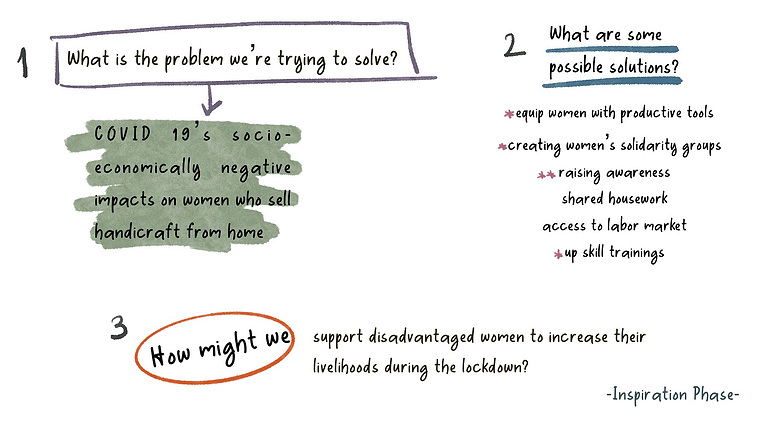 1
What is the problem we're trying to solve?
COVID 19's socio-
economically negative
impacts on women who sell
handicraft from home
2
What are some
possible solutions?
*equip women with productive tools
*creating women's solidarity groups
**raising awareness
shared housework
access to labor market
*up skill trainings
3
How might we
support disadvantaged women to increase their
livelihoods during the lockdown?
-Inspiration Phase-